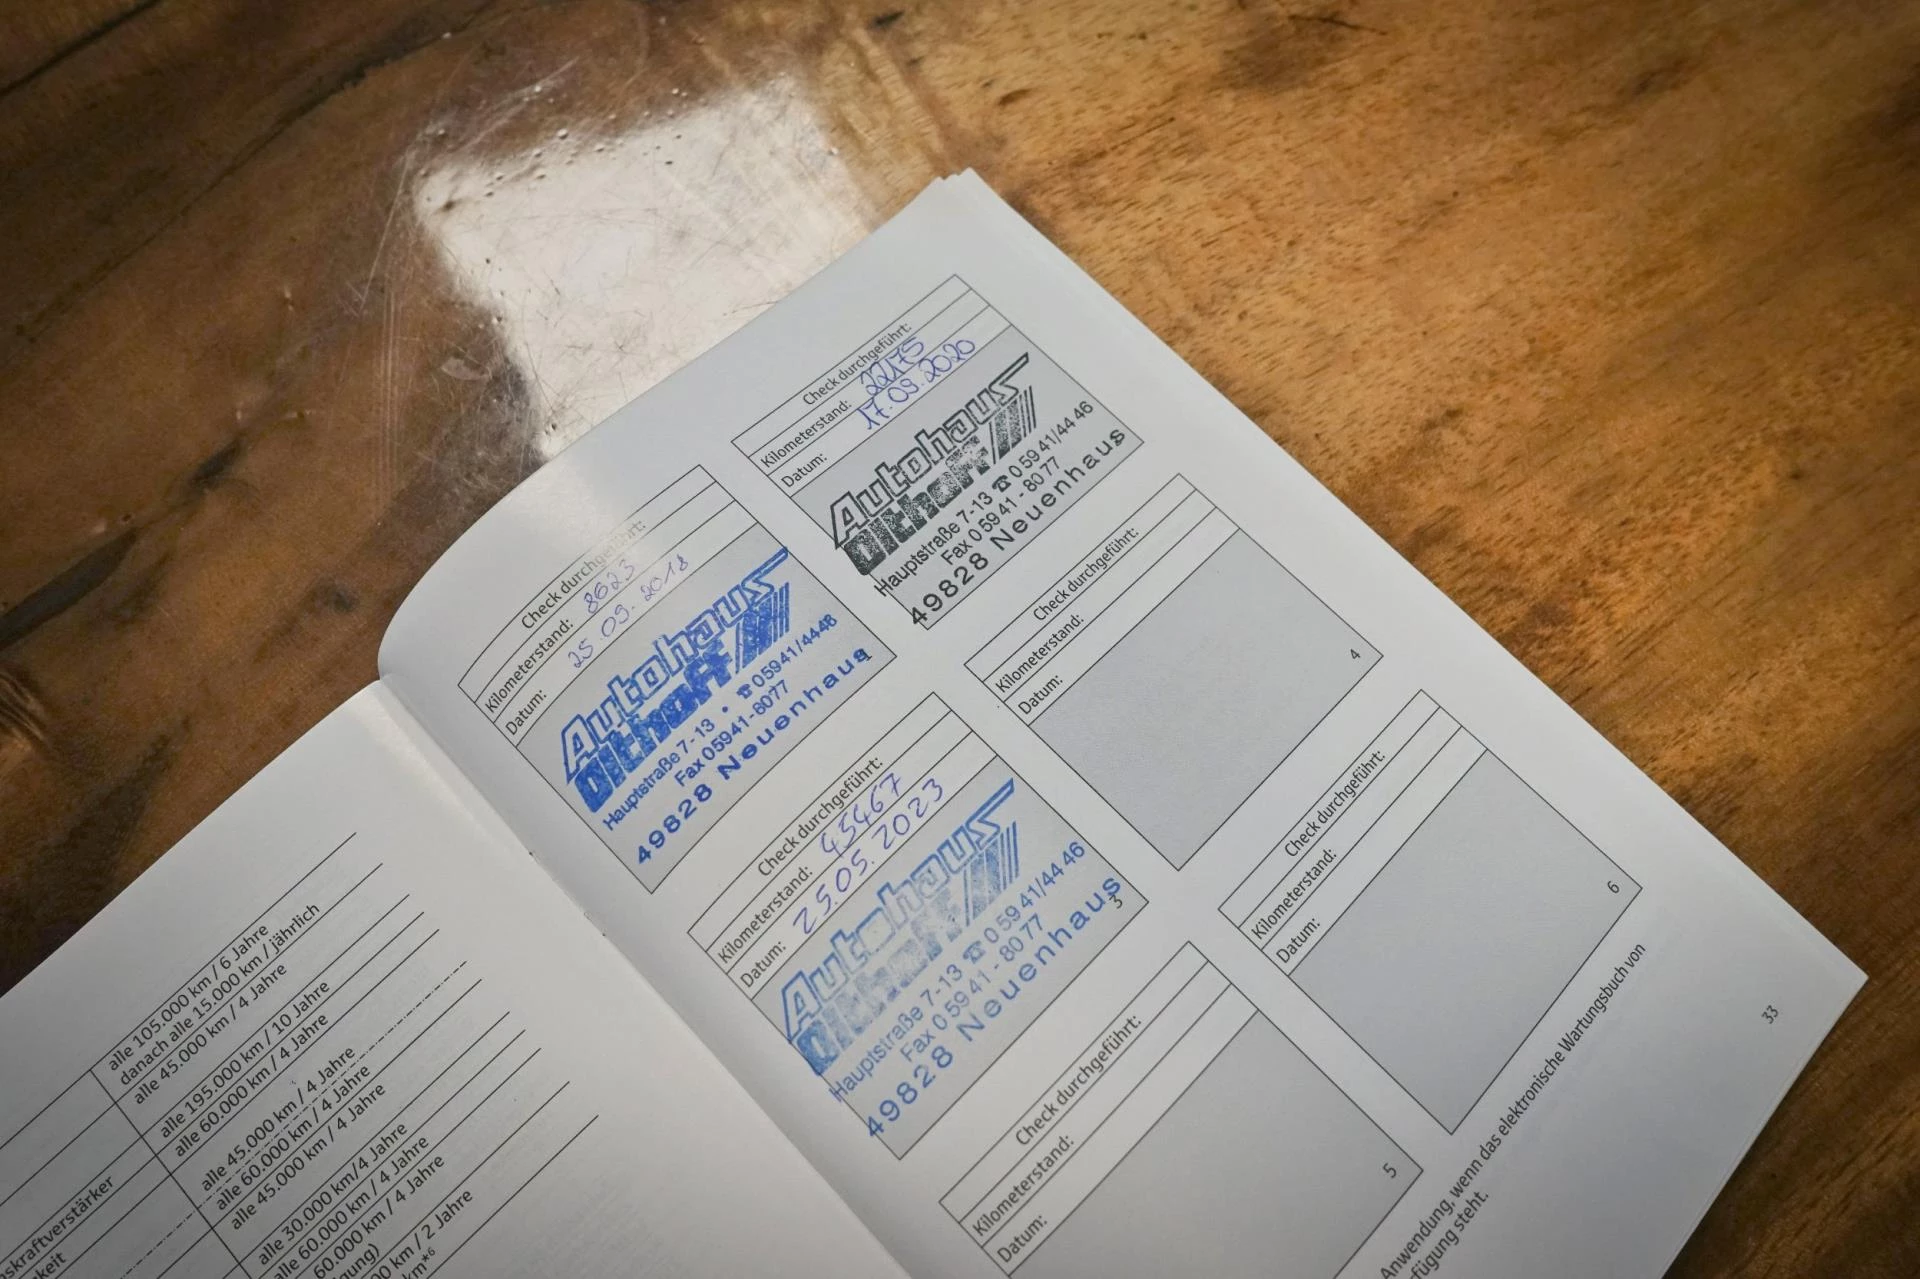 alle 105.000 km / 6 Jahre
danach alle 15.000 km / jährlich
alle 45.000 km / 4 Jahre
alle 195.000 km / 10 Jahre
alle 60.000 km / 4 Jahre
alle 45.000 km / 4 Jahre
alle 60.000 km / 4 Jahre
alle 45.000 km / 4 Jahre
alle 30.000 km/4 Jahre
alle 60.000 km / 4 Jahre
60.000 km / 4 Jahre
km / 2 Jahre
km*6
Check durchgeführt:
Kilometerstand: 8623
Datum: 25.09.2018
Autohaus
Olthoff
Hauptstraße 7-13 • ☎ 05941/4446
Fax 05941-8077
49828 Neuenhaus
Check durchgeführt:
Kilometerstand: 22175
Datum: 17.09.2020
Autohaus
Olthoff
Hauptstraße 7-13 ☎ 0 59 41/44 46
Fax 0 59 41 - 80 77
49828 Neuenhaus
Check durchgeführt:
Kilometerstand: 43467
Datum: 25.05.2023
Autohaus
Olthoff
Hauptstraße 7-13 ☎ 0 59 41/44 46
Fax 0 59 41 - 80 77
49828 Neuenhaus
3
Check durchgeführt:
Kilometerstand:
Datum:
4
Check durchgeführt:
Kilometerstand:
Datum:
5
Check durchgeführt:
Kilometerstand:
Datum:
6
Anwendung, wenn das elektronische Wartungsbuch von
steht.
33